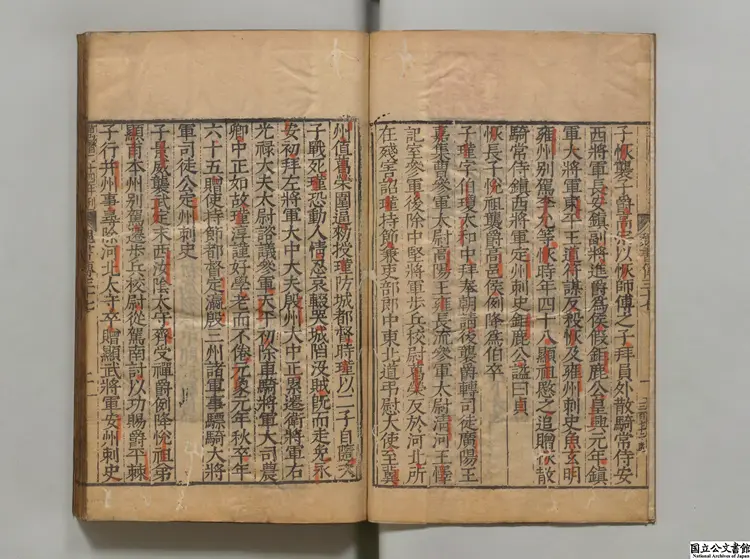 子恢襲子爵高宗以恢師傅之子拜員外散騎常侍安
西將軍長安鎮副將進爵爲侯假鉅鹿公皇興元年鎮
軍大將軍東平王道符謀反殺恢及雍州刺史魚玄明
雍州別駕李允等恢時年四十八顯祖愍之追贈恢散
騎常侍鎮西將軍定州刺史鉅鹿公諡曰貞
恢長子悅祖襲爵高邑侯例降爲伯卒
子瑾字伯瓊太和中拜奉朝請後襲爵轉司徒廣陽王
嘉集曹參軍太尉高陽王雍長流參軍太尉清河王懌
記室參軍後除中堅將軍步兵校尉葛榮反於河北所
在殘害詔瑾持節兼吏部郎中東北道弔慰大使至冀
州值葛榮圍逼敕授瑾防城都督時瑾以二子自隨次
子戰死瑾恐動人情忍哀輟哭城陷沒賊旣而走免永
安初拜左將軍太中大夫殷州大中正累遷衛將軍右
光祿大夫太尉諮議參軍天平初除車騎將軍大司農
卿中正如故瑾淳謹好學老而不倦元象元年秋卒年
六十五贈使持節都督定瀛殷三州諸軍事驃騎大將
軍司徒公定州刺史
子長威襲武定末西汝陰太守齊受禪爵例降悅祖弟
顯甫本州別駕遷步兵校尉從駕南討以功賜爵平棘
子行并州事尋除河北太守卒贈顯武將軍安州刺史
魏書傳三十七
国立公文書館
National Archives of Japan